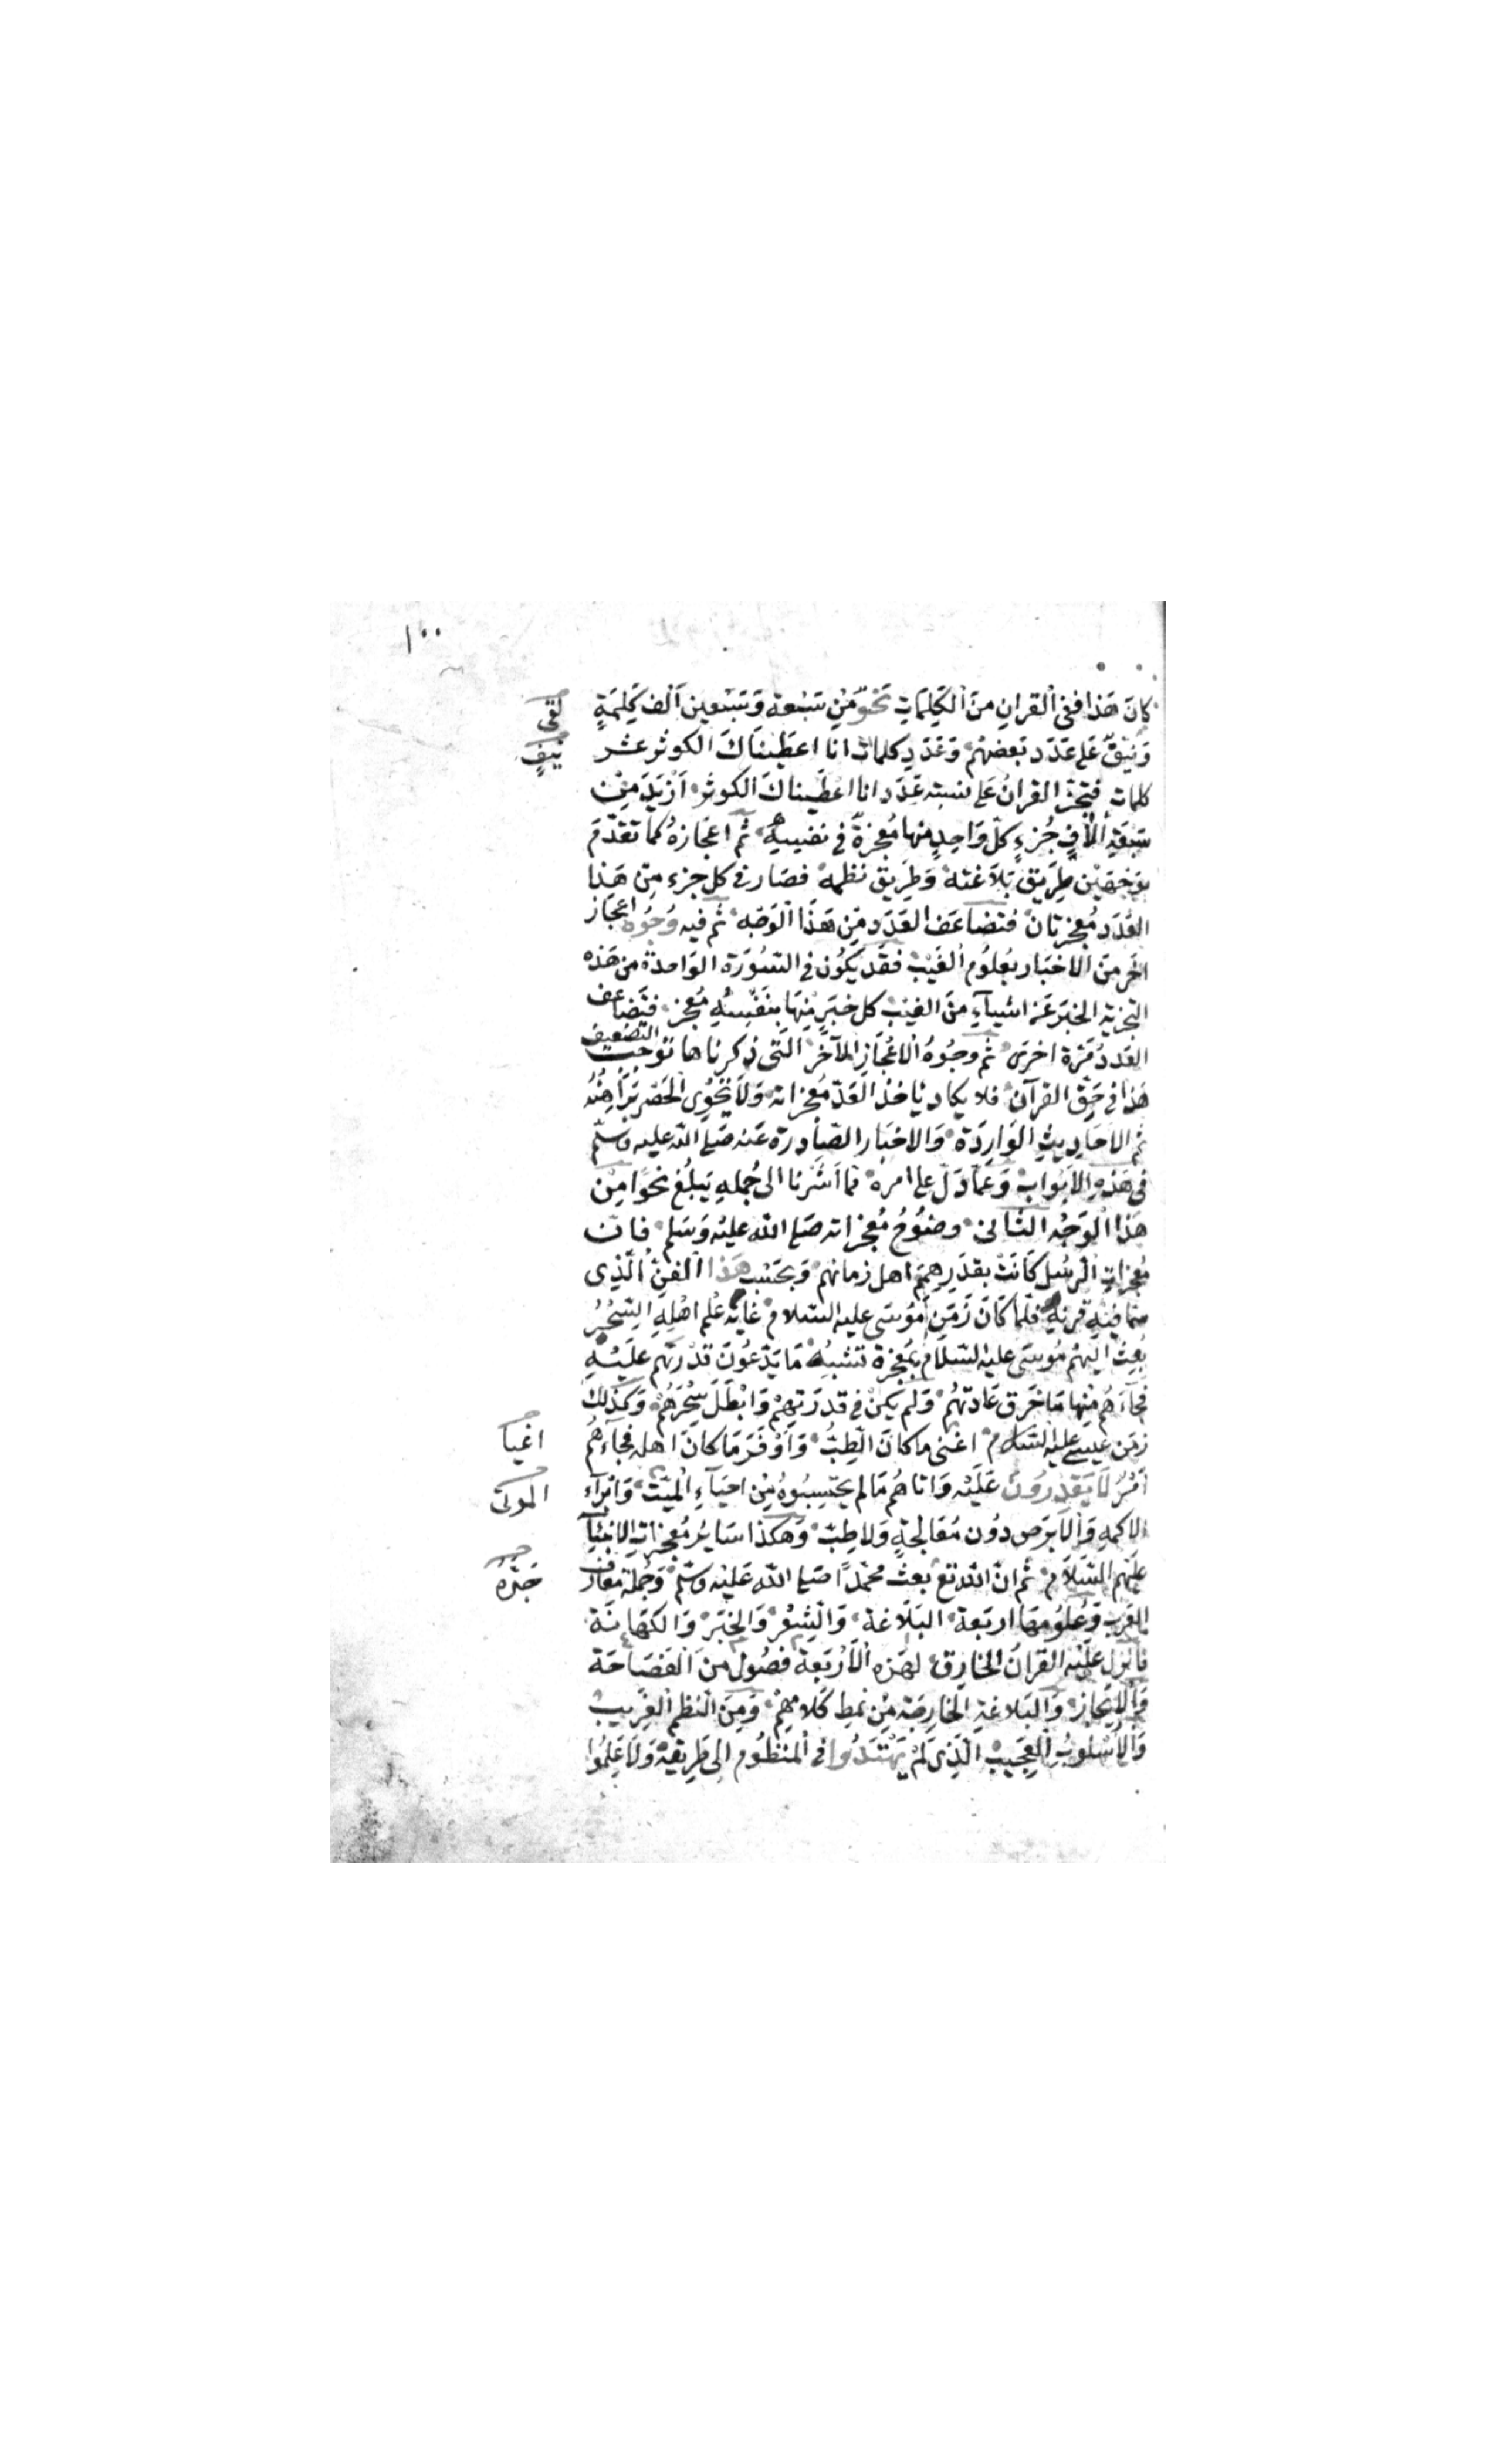 ١٠٠
كانَ هَذا ففى القرانِ منَ الكَلِمَاتِ نَحوٌ مِنْ سَبْعَة وَسَبْعين اَلف كَلِمَةٍ
وَنَيِّفٌ عَلى عَدَد بَعضهُم وَعَدَدِ كلمات انا اعطَيناكَ الكوثر عشر
كلمات فتجزّ القرانُ عَلى نسبته عَدَد انا اعطَيناكَ الكوثر اَزْيَدَ مِنْ
سَبعَةِ الٓافِ جُزءٍ كلّ وَاحِدٍ منها مُعجزةٌ فى نفسِهِ ثم اعجَازهُ كما تقدّمَ
بوَجهَين طَرِيق بَلَاغته وَطَرِيق نظمه فصَار فى كل جزءٍ مِن هَذا
العَدَد مُعجزتانِ فتضاعَف العَدَد مِن هَذَا الوَجه ثم فيه وُجُوه اعجَاز
اخَر منَ الاخبَار بعُلوُم الغَيْب فقَد يَكوُن فى السّوُرَة الوَاحدة من هَذه
التجزية الخبَر عَن اشيآءَ منَ الغَيْب كل خبَرٍ مِنهَا بنَفسِهِ مُعجز فتضاعف
العَددُ مَرّة اخرَى ثم وجُوهُ الاعْجَازِ الآخَر التى ذكرناها توُجب التضعيف
هَذا فى حَقّ القرآن فلا يكاد ياخذ العَدّ مُعجزاته وَلَا يَحْوِى الحَصْر بَرَاهِينَهُ
ثم الاحَاديث الوَارِدَة وَالاخبَار الصّادرة عَنه صَلى الله عليه وسلم
فى هَذِهِ الابَوَابِ وَعَمّا دَلّ على امره مما اَشَرنا الى جُملهِ يَبلُغ نحوًا مِنْ
هَذا الوَجْه الثّانى وضوُحُ مُعجزاته صَلى الله عليْه وَسَلم فان
مُعجزات الرّسُل كَانَتْ بقَدَرِ هِمَم اهل زمانهم وَبحَسَب هَذا الفنّ الّذى
سَمَا فيْهِ قرنه فلمّا كَانَ زَمَن مُوسَى عليه السّلام غاية علم اهْلِهِ السّحْرُ
بُعِثَ اليْهم مُوسَى عليه السّلام بمُعجزة تشبهُ مَا يَدّعُونَ قدْرَتهم عَلَيْهِ
فجآءَهم منها مَا خَرَق عَادتهُم وَلم يَكنْ فى قدرَتِهِمْ وَابْطَلَ سِحْرَهُمْ وَكَذلك
زمَن عيسى عليه السّلام اغنى ما كانَ الطِبُّ وَاَوْفَرَ مَا كانَ اهله فجآءَهُم
اَمْرٌ لَا يَقدِرُون عَلَيْه وَاتاهُم مَا لم يحتسِبُوهُ مِن احيَآءِ الميّت وَابْرآء
الاكمهِ وَالابرَص دُون مُعَالجةٍ ولا طِبّ وَهكذا سَايُر مُعجزات الانبيَآ
عليهم السّلام ثم ان الله تع بعث محمّدًا صَلى الله عَليْه وسلم وَجُملة معَارف
العَرب وَعُلوُمها اربَعة البَلَاغة وَالشِعْر وَالخبَر وَالكهَانَة
فانزل عَلَيْه القرانُ الخارق لهَذِهِ الاَرْبَعَة فصُول منَ الفَصَاحَة
وَالايجَاز وَالبَلَاغةِ الخارجَة مِنْ نمَط كَلَامِهِمْ وَمِنَ النظم الغَريب
وَالاُسْلوُب العَجيب الّذى لَمْ يَهْتَدُوا فى المنظوُم الى طَرِيقه وَلَا عَلِمُوا
لقى
نيفٍ
اغيا
الموتى
خبَرُه